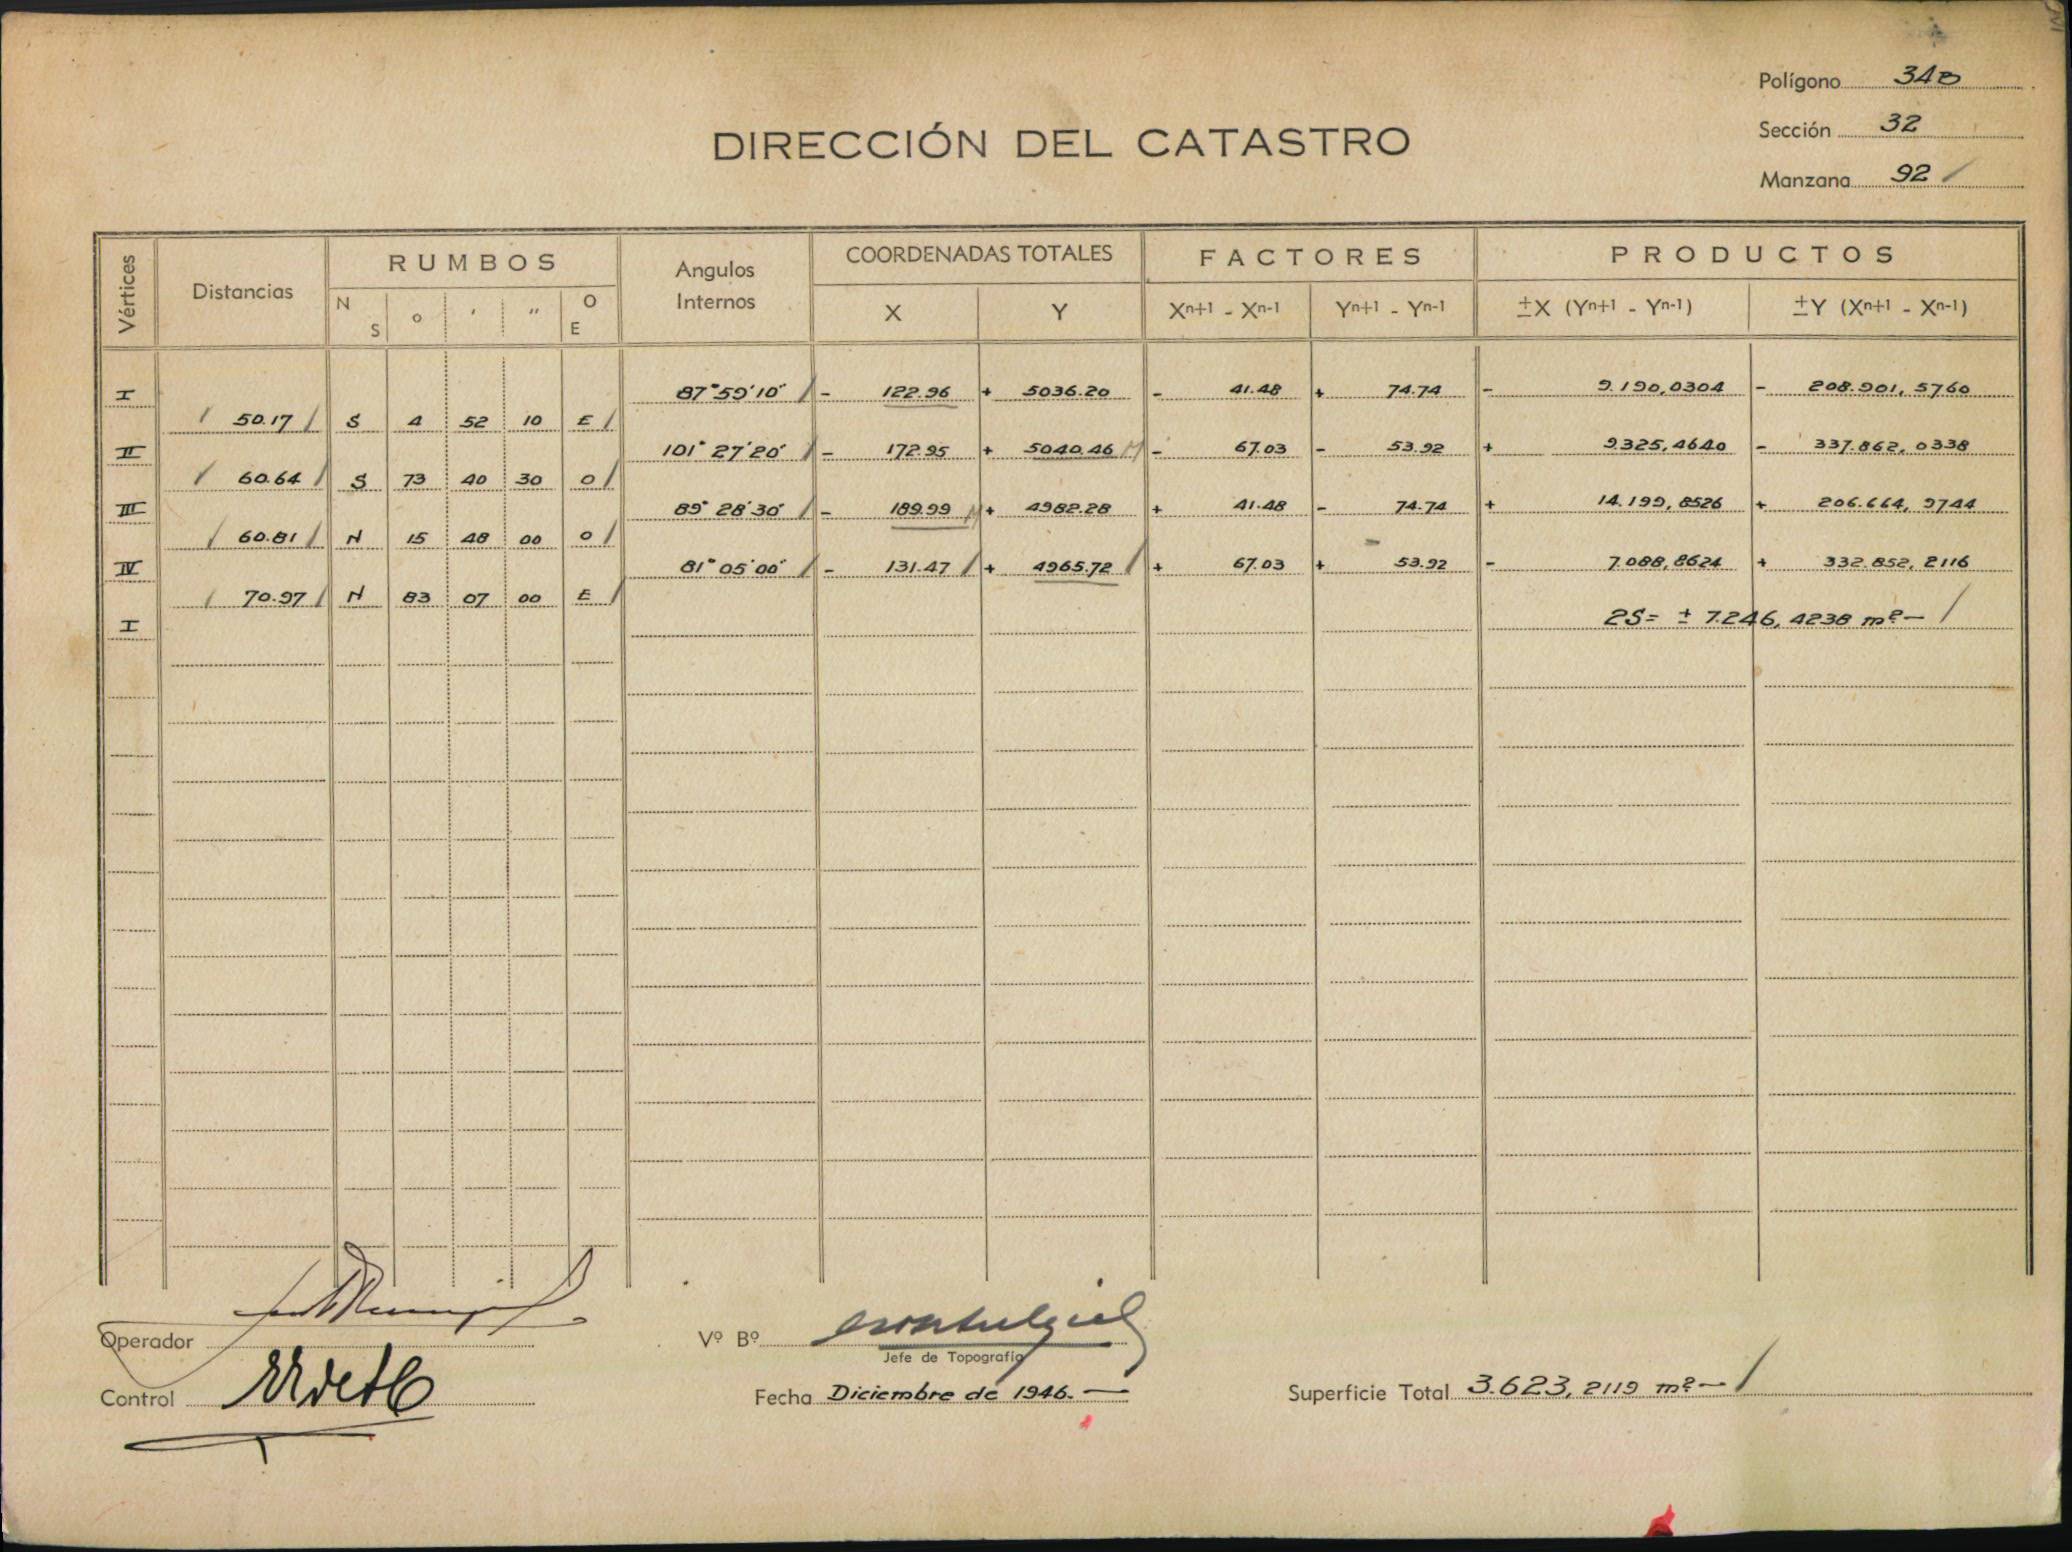 Polígono 348
Sección 32
Manzana 92
DIRECCIÓN DEL CATASTRO
Vértices Distancias RUMBOS Angulos Internos COORDENADAS TOTALES FACTORES PRODUCTOS
N S o ' " O E X Y Xn+1 - Xn-1 Yn+1 - Yn-1 ±X (Yn+1 - Yn-1) ±Y (Xn+1 - Xn-1)
I 87°59'10" - 122.96 + 5036.20 - 41.48 + 74.74 - 9.190,0304 - 208.901,5760
50.17 S 4 52 10 E
II 101°27'20" - 172.95 + 5040.46 - 67.03 - 53.92 + 9.325,4640 - 337.862,0338
60.64 S 73 40 30 O
III 89°28'30" - 189.99 + 4982.28 + 41.48 - 74.74 + 14.199,8526 + 206.664,9744
60.81 N 15 48 00 O
IV 81°05'00" - 131.47 + 4965.72 + 67.03 + 53.92 - 7.088,8624 + 332.852,2116
70.97 N 83 07 00 E
I 2S= ± 7.246,4238 m²-
Operador
Vº Bº
Jefe de Topografía
Control
Fecha Diciembre de 1946.-
Superficie Total 3.623,2119 m²-